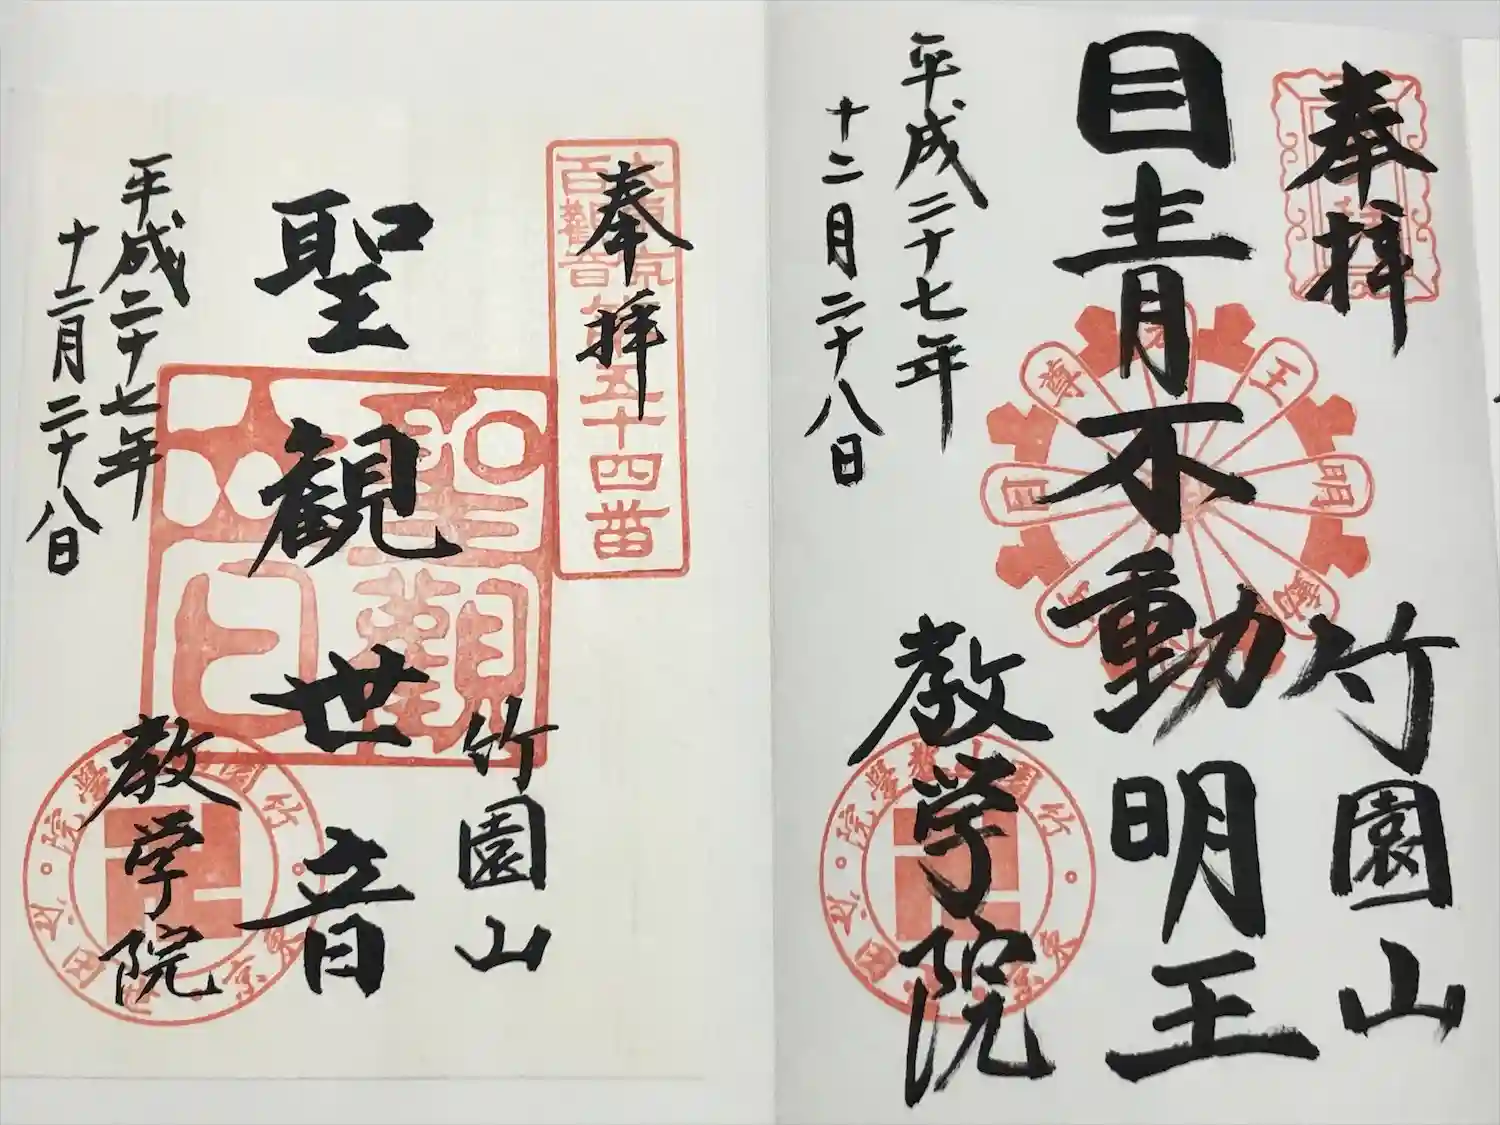 奉拝
竹園山
目青不動明王
教学院
平成二十七年
十二月二十八日
奉拝
百観音第五十四番
竹園山
聖観世音
教学院
平成二十七年
十二月二十八日